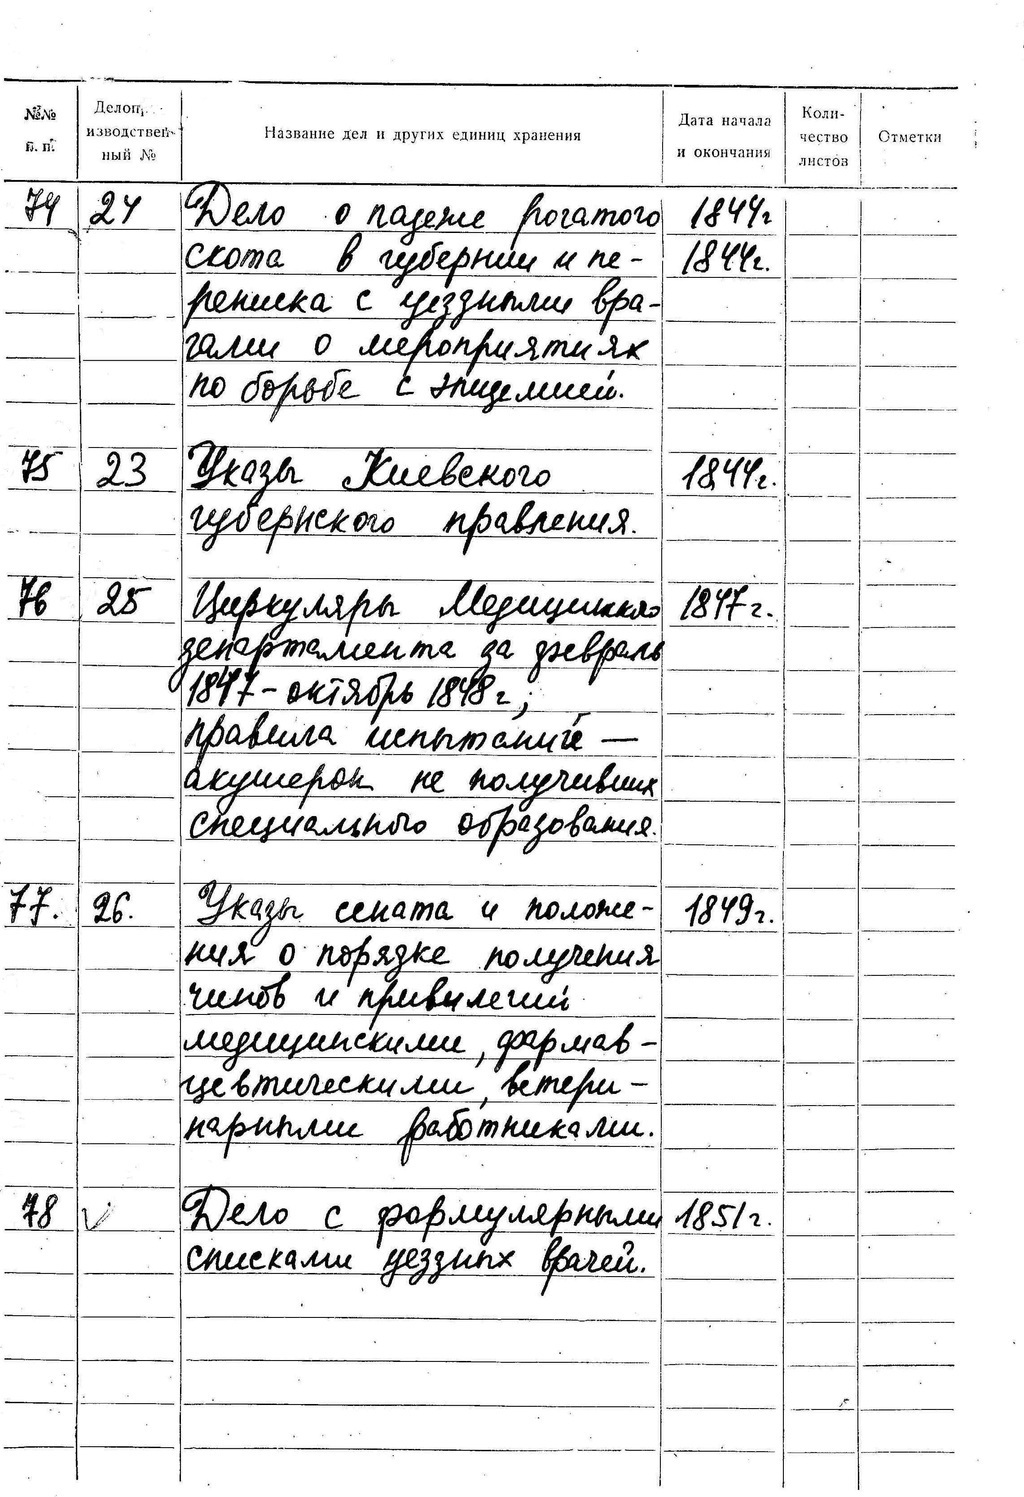 №№ п. п. Делопр-изводствен-ный № Название дел и других единиц хранения Дата начала и окончания Коли-чество листов Отметки
74 24 Дело о падеже рогатого 1844г
скота в губернии и пе- 1844г.
реписка с уездными вра-
чами о мероприятиях
по борьбе с эпидемией.
75 23 Указы Киевского 1844г.
губернского правления.
76 25 Циркуляры Медицинского 1847г.
департамента за февраль
1847-октябрь 1848г,;
правила испытаний —
акушерок не получивших
специального образования.
77. 26. Указы сената и положе- 1849г.
ния о порядке получения
чинов и привилегий
медицинскими, фармав-
цевтическими, ветери-
нарными работниками.
78 V Дело с формулярными 1851г.
списками уездных врачей.